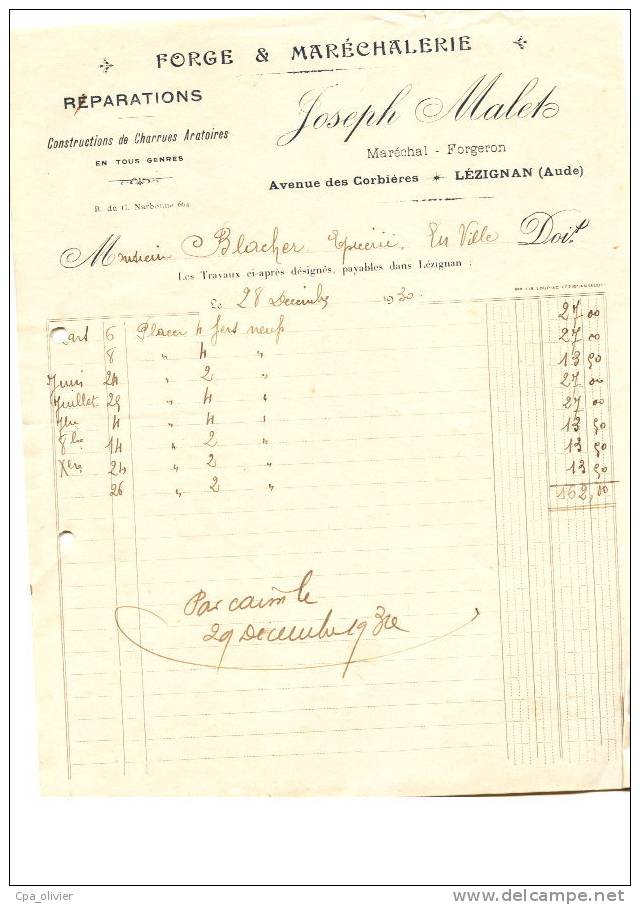 FORGE & MARÉCHALERIE
RÉPARATIONS
Constructions de Charrues Aratoires
EN TOUS GENRES
R. du C. Narbonne 664
Joseph Malet
Maréchal - Forgeron
Avenue des Corbières * LÉZIGNAN (Aude)
Monsieur Blacher Epicerie En Ville Doit
Les Travaux ci-après désignés, payables dans Lézignan :
Le 28 Decembre 1930
Mars 6 Placer 4 fers neufs 27 00
8 " 4 " 27 00
Juin 24 " 2 " 13 50
Juillet 25 " 4 " 27 00
4 " 4 " 27 00
8bre 14 " 2 " 13 50
Xbre 24 " 2 " 13 50
26 " 2 " 13 50
162,00
Par caisse le
29 Decembre 1930
Cpa_olivier
delcampe.net